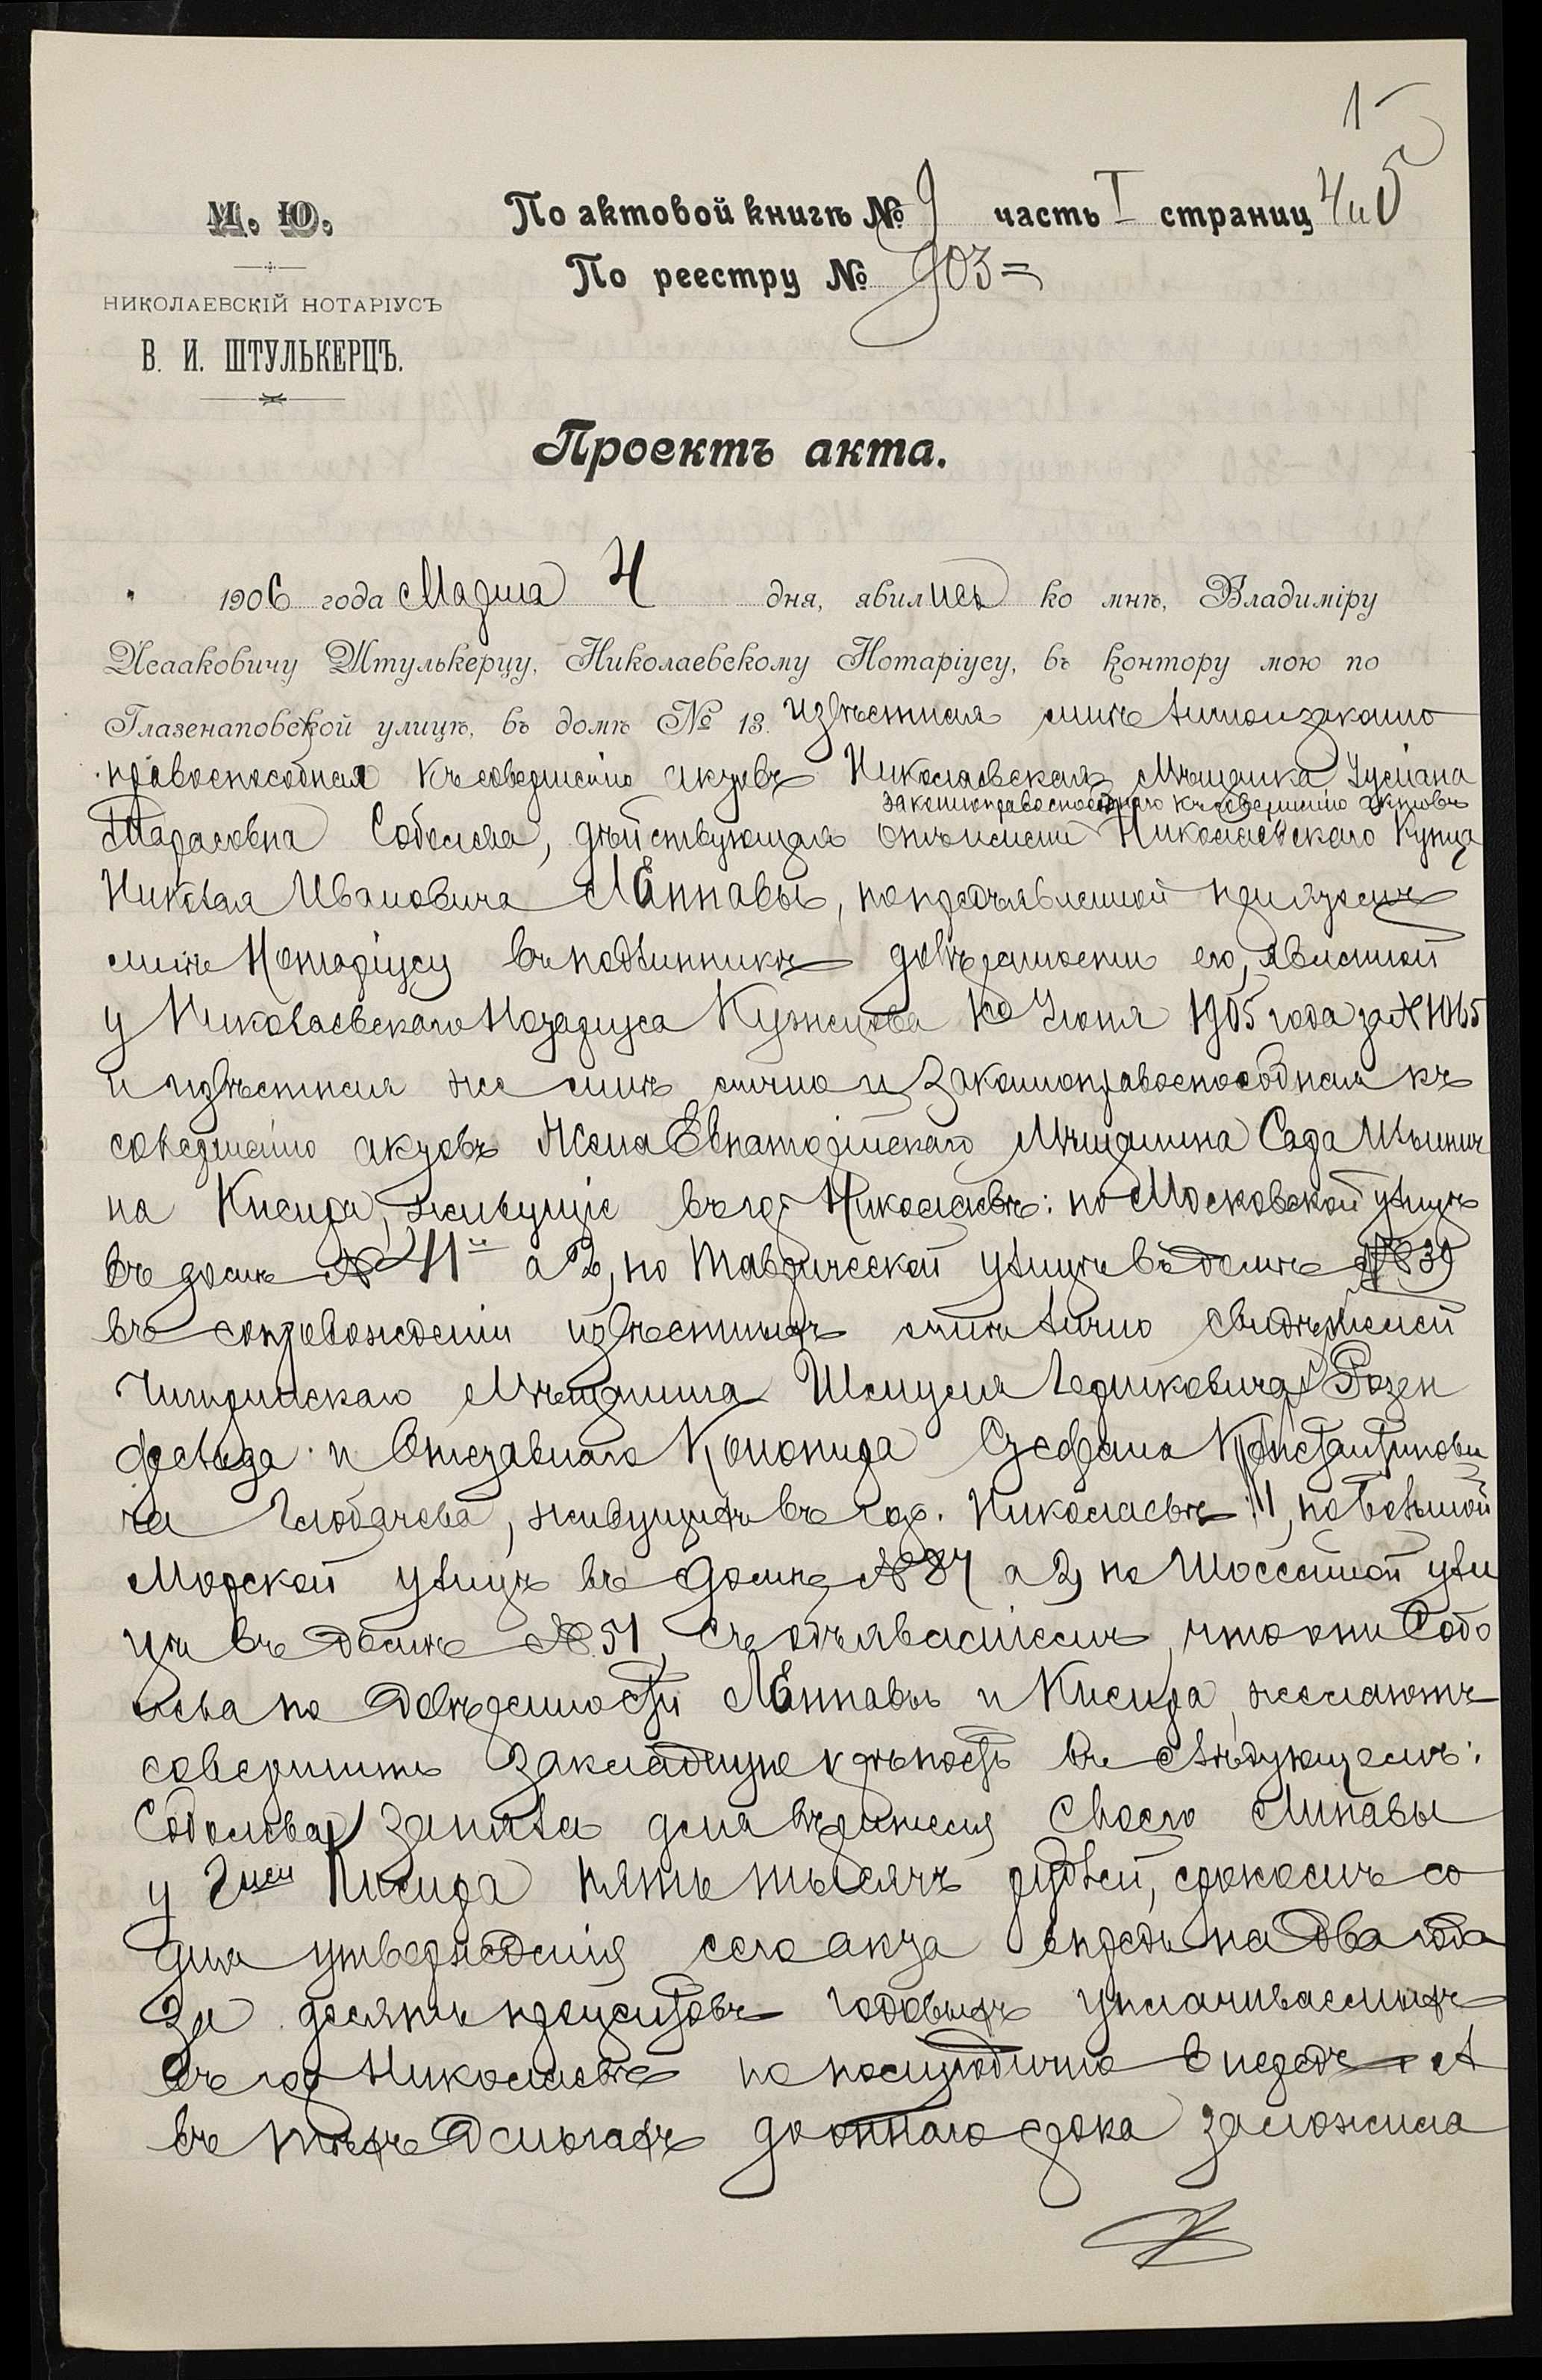 1
М. Ю.
НИКОЛАЕВСКІЙ НОТАРІУСЪ
В. И. ШТУЛЬКЕРЦЪ.
По актовой книгѣ № 9 часть I страниц 4 и 5
По реестру № 903=
Проектъ акта.
1906 года Марта 4 дня, явились ко мнѣ, Владиміру
Исааковичу Штулькерцу, Николаевскому Нотаріусу, въ контору мою по
Глазенаповской улицѣ, въ домѣ № 13. извѣстная мнѣ лично и законно
правоспособная къ совершенію актовъ Николаевская Мѣщанка
законноправоспособнаго къ совершенію актовъ
Тарасовна Соболева, дѣйствующая отъ имени Николаевскаго Купца
Николая Ивановича Липпавы, по предъявленной при этомъ
мнѣ Нотаріусу въ подлинникѣ довѣренности его, явленной
у Николаевскаго Нотаріуса Кузнецова Іюня 1905 года за № 1065
и извѣстная же мнѣ лично и законноправоспособная къ
совершенію актовъ Жена Евпаторійскаго Мѣщанина Сара Ильинич
на живущіе въ гор. Николаевѣ: по Московской улицѣ
въ домѣ № 41й а 2, по Таврической улицѣ въ домѣ № 39
въ сопровожденіи извѣстныхъ мнѣ лично свидѣтелей
Чигиринскаго Мѣщанина Шмуля Розен
фельда и Отставного Стефана Константинови
ча живущихъ въ гор. Николаевѣ: 1, по Большой
Морской улицѣ въ домѣ № 84 а 2, по Шоссейной ули
цѣ въ домѣ № 51, съ объявленіемъ, что они Собо
лева по довѣренности Липпавы и желаютъ
совершить закладную крѣпость въ слѣдующемъ:
Соболева заняла для вѣрителя своего Липавы
у Г-жи пять тысячъ рублей, срокомъ со
дня утвержденія сего акта впредь на два года
за десять процентовъ годовыхъ уплачиваемыхъ
въ гор. Николаевѣ по полугодично впередъ А
въ тѣхъ деньгахъ до оннаго срока заложила